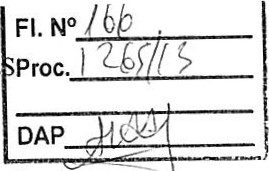 Fl. Nº 166
SProc. 1265/13
DAP